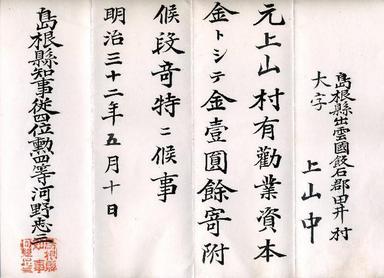 島根縣出雲國飯石郡田井村
大字
上山中
元上山村有勸業資本
金トシテ金壹圓餘寄附
候段奇特ニ候事
明治三十二年五月十日
島根縣知事從四位勳四等河野忠三